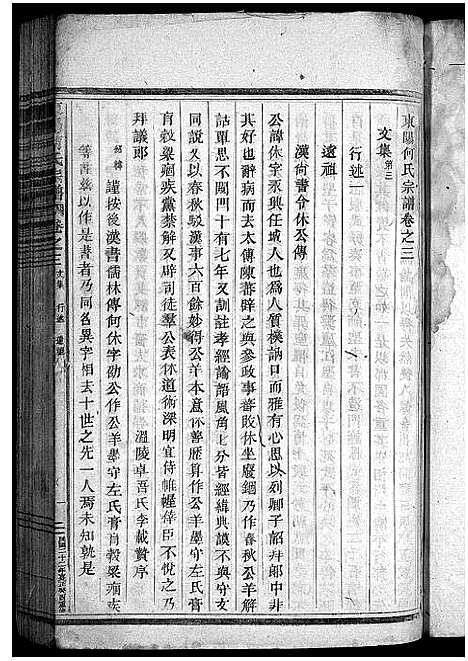 東陽何氏宗譜卷之三
文集 第三
行述一
遠祖
漢尚書令休公傳
公諱休字永興任城人也爲人質樸訥口而雅有心思以列卿子詔拜郎中非
其好也辭病而去太傅陳蕃辟之與參政事蕃敗休坐廢錮乃作春秋公羊解
詁覃思不闚門十有七年又訓註孝經論語風角上分皆經緯典謨不與守文
同說又以春秋駁漢事六百餘妙得公羊本意休善歷算作公羊墨守左氏膏
肓穀梁癈疾黨禁解又辟司徒羣公表休道術深明宜侍帷幄倖臣不悅之乃
拜議郎
溫陵卓吾氏李載贄序
謹按後漢書儒林傳何休字劭公作公羊墨守左氏膏肓穀梁癈疾
等書茲以作是書者乃同名異字相去十世之先一人焉未知就是
文集 行述 遠祖
一